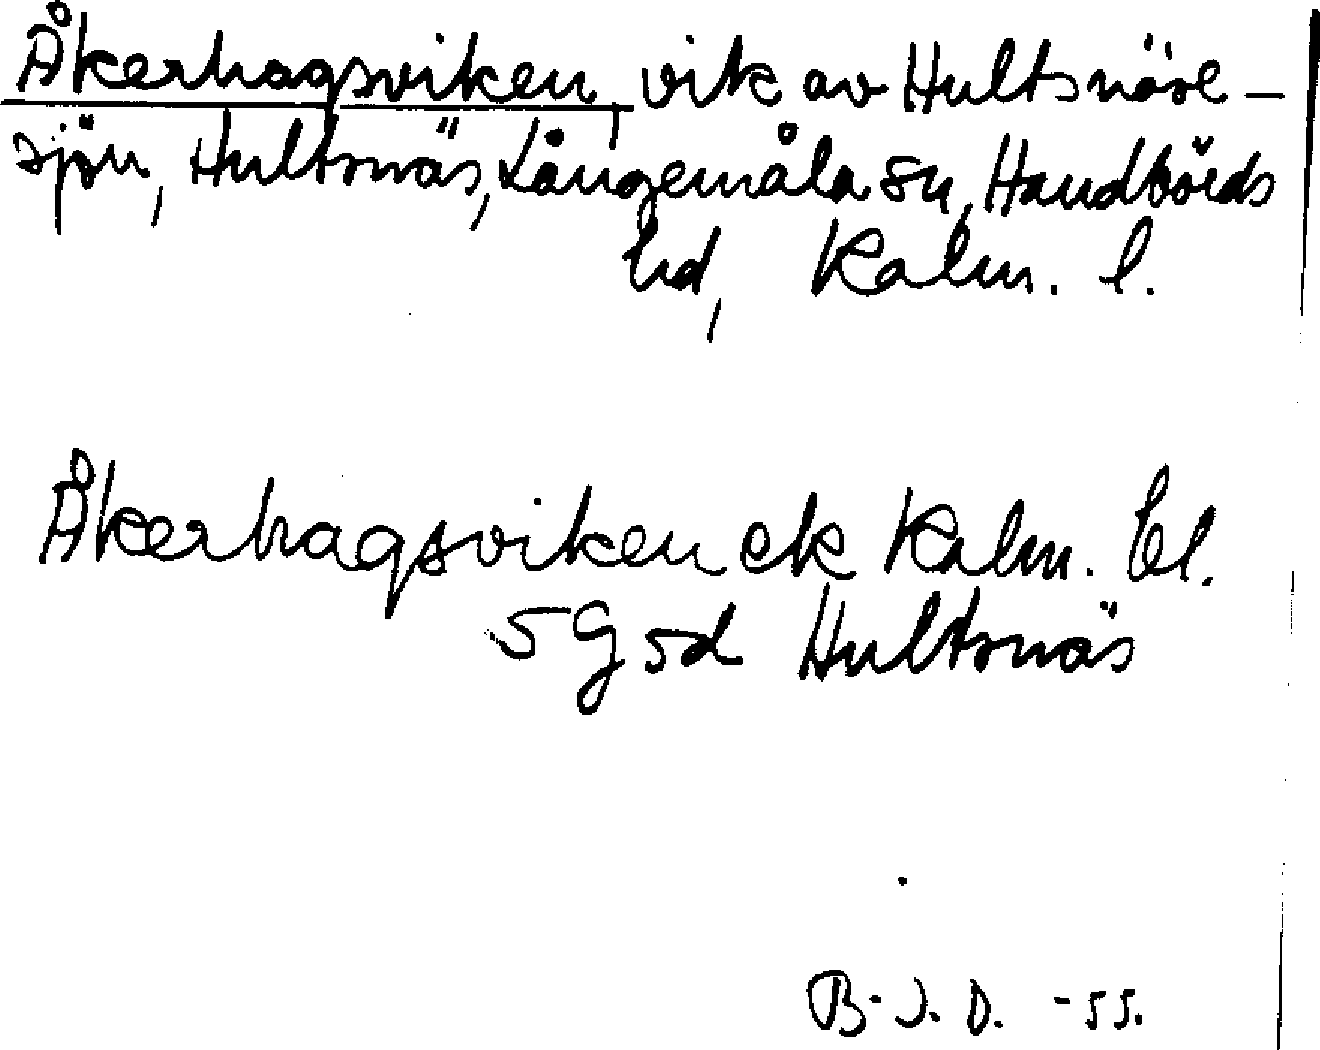 Åkerhagsviken, vik av Hultsnäse-
sjön, Hultsnäs, Långemåla sn, Handbörds
hd, Kalm. l.
Åkerhagsviken ek Kalm. bl.
5 G sd Hultsnäs
B-J. D. -55.